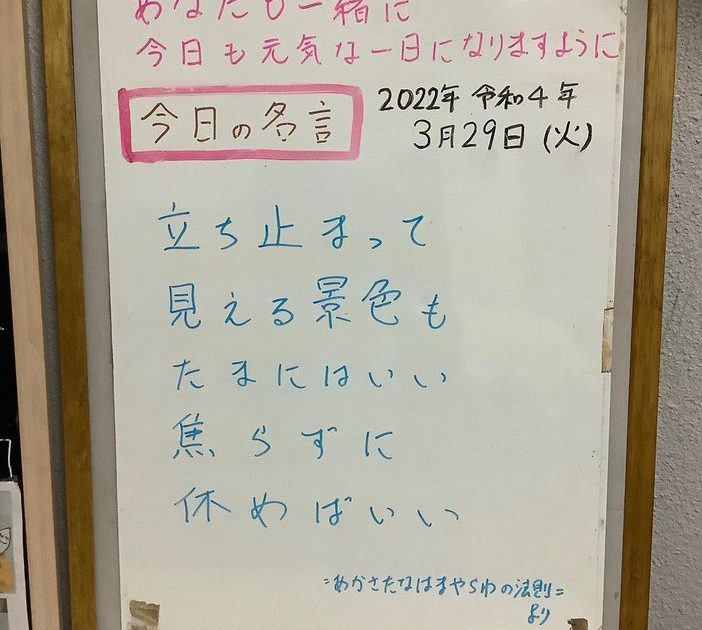 あなたも一緒に
今日も元気な一日になりますように
今日の名言
2022年 令和4年
3月29日(火)
立ち止まって
見える景色も
たまにはいい
焦らずに
休めばいい
=あかさたなはまやらわの法則=
より